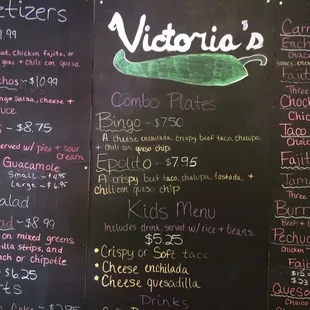 etizers
.99
at, Chicken Fajita, or
guac + chili con queso.
chos - $10.99
ngo Salsa, cheese +
uce.
s - $8.75
served w/ rice + sour
cream
Guacamole
Small -
Large -
alad
ad - $8.99
on mixed greens,
illa strips, and
ch or chipotle
- $6.25
rts
Victoria's
Combo Plates
Bingo - $7.50
A cheese enchilada, crispy beef taco, chalupa,
+ chili con queso chip.
Epolito - $7.95
A crispy beef taco, chalupa, tostada, +
chili con queso chip
Kids Menu
Includes drink, served w/ rice + beans.
$5.25
• Crispy or Soft taco
• Cheese enchilada
• Cheese quesadilla
Drinks
Carn
Ench
Choic
sauce,
Fajit
Three
Choch
Chic
Taco
Choic
Fajit
Tam
Three
Burr
Beef
Pechu
Chicken
Fajit
Queso